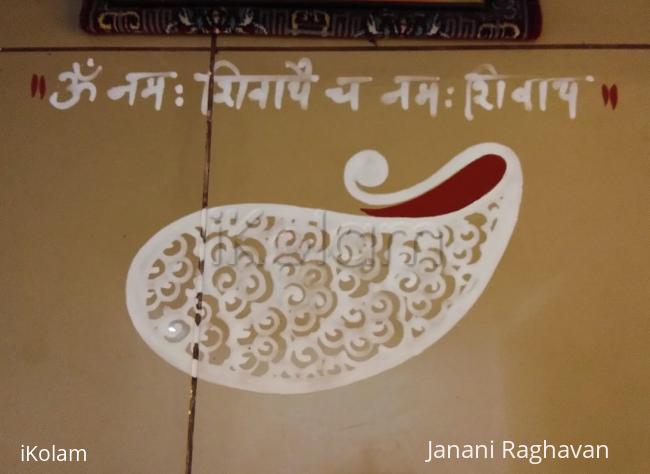 "ॐ नमः शिवायै च नमः शिवाय"
iKolam
iKolam
Janani Raghavan